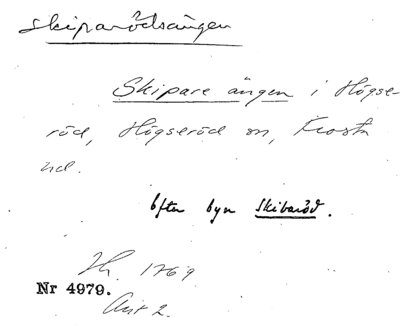 Skiparödsängen
Skipare ängen i Högse-
röd, Högseröd sn, Frosta
hd.
Efter byn Skibaröd.
1769
Nr 4979.
Akt 2.